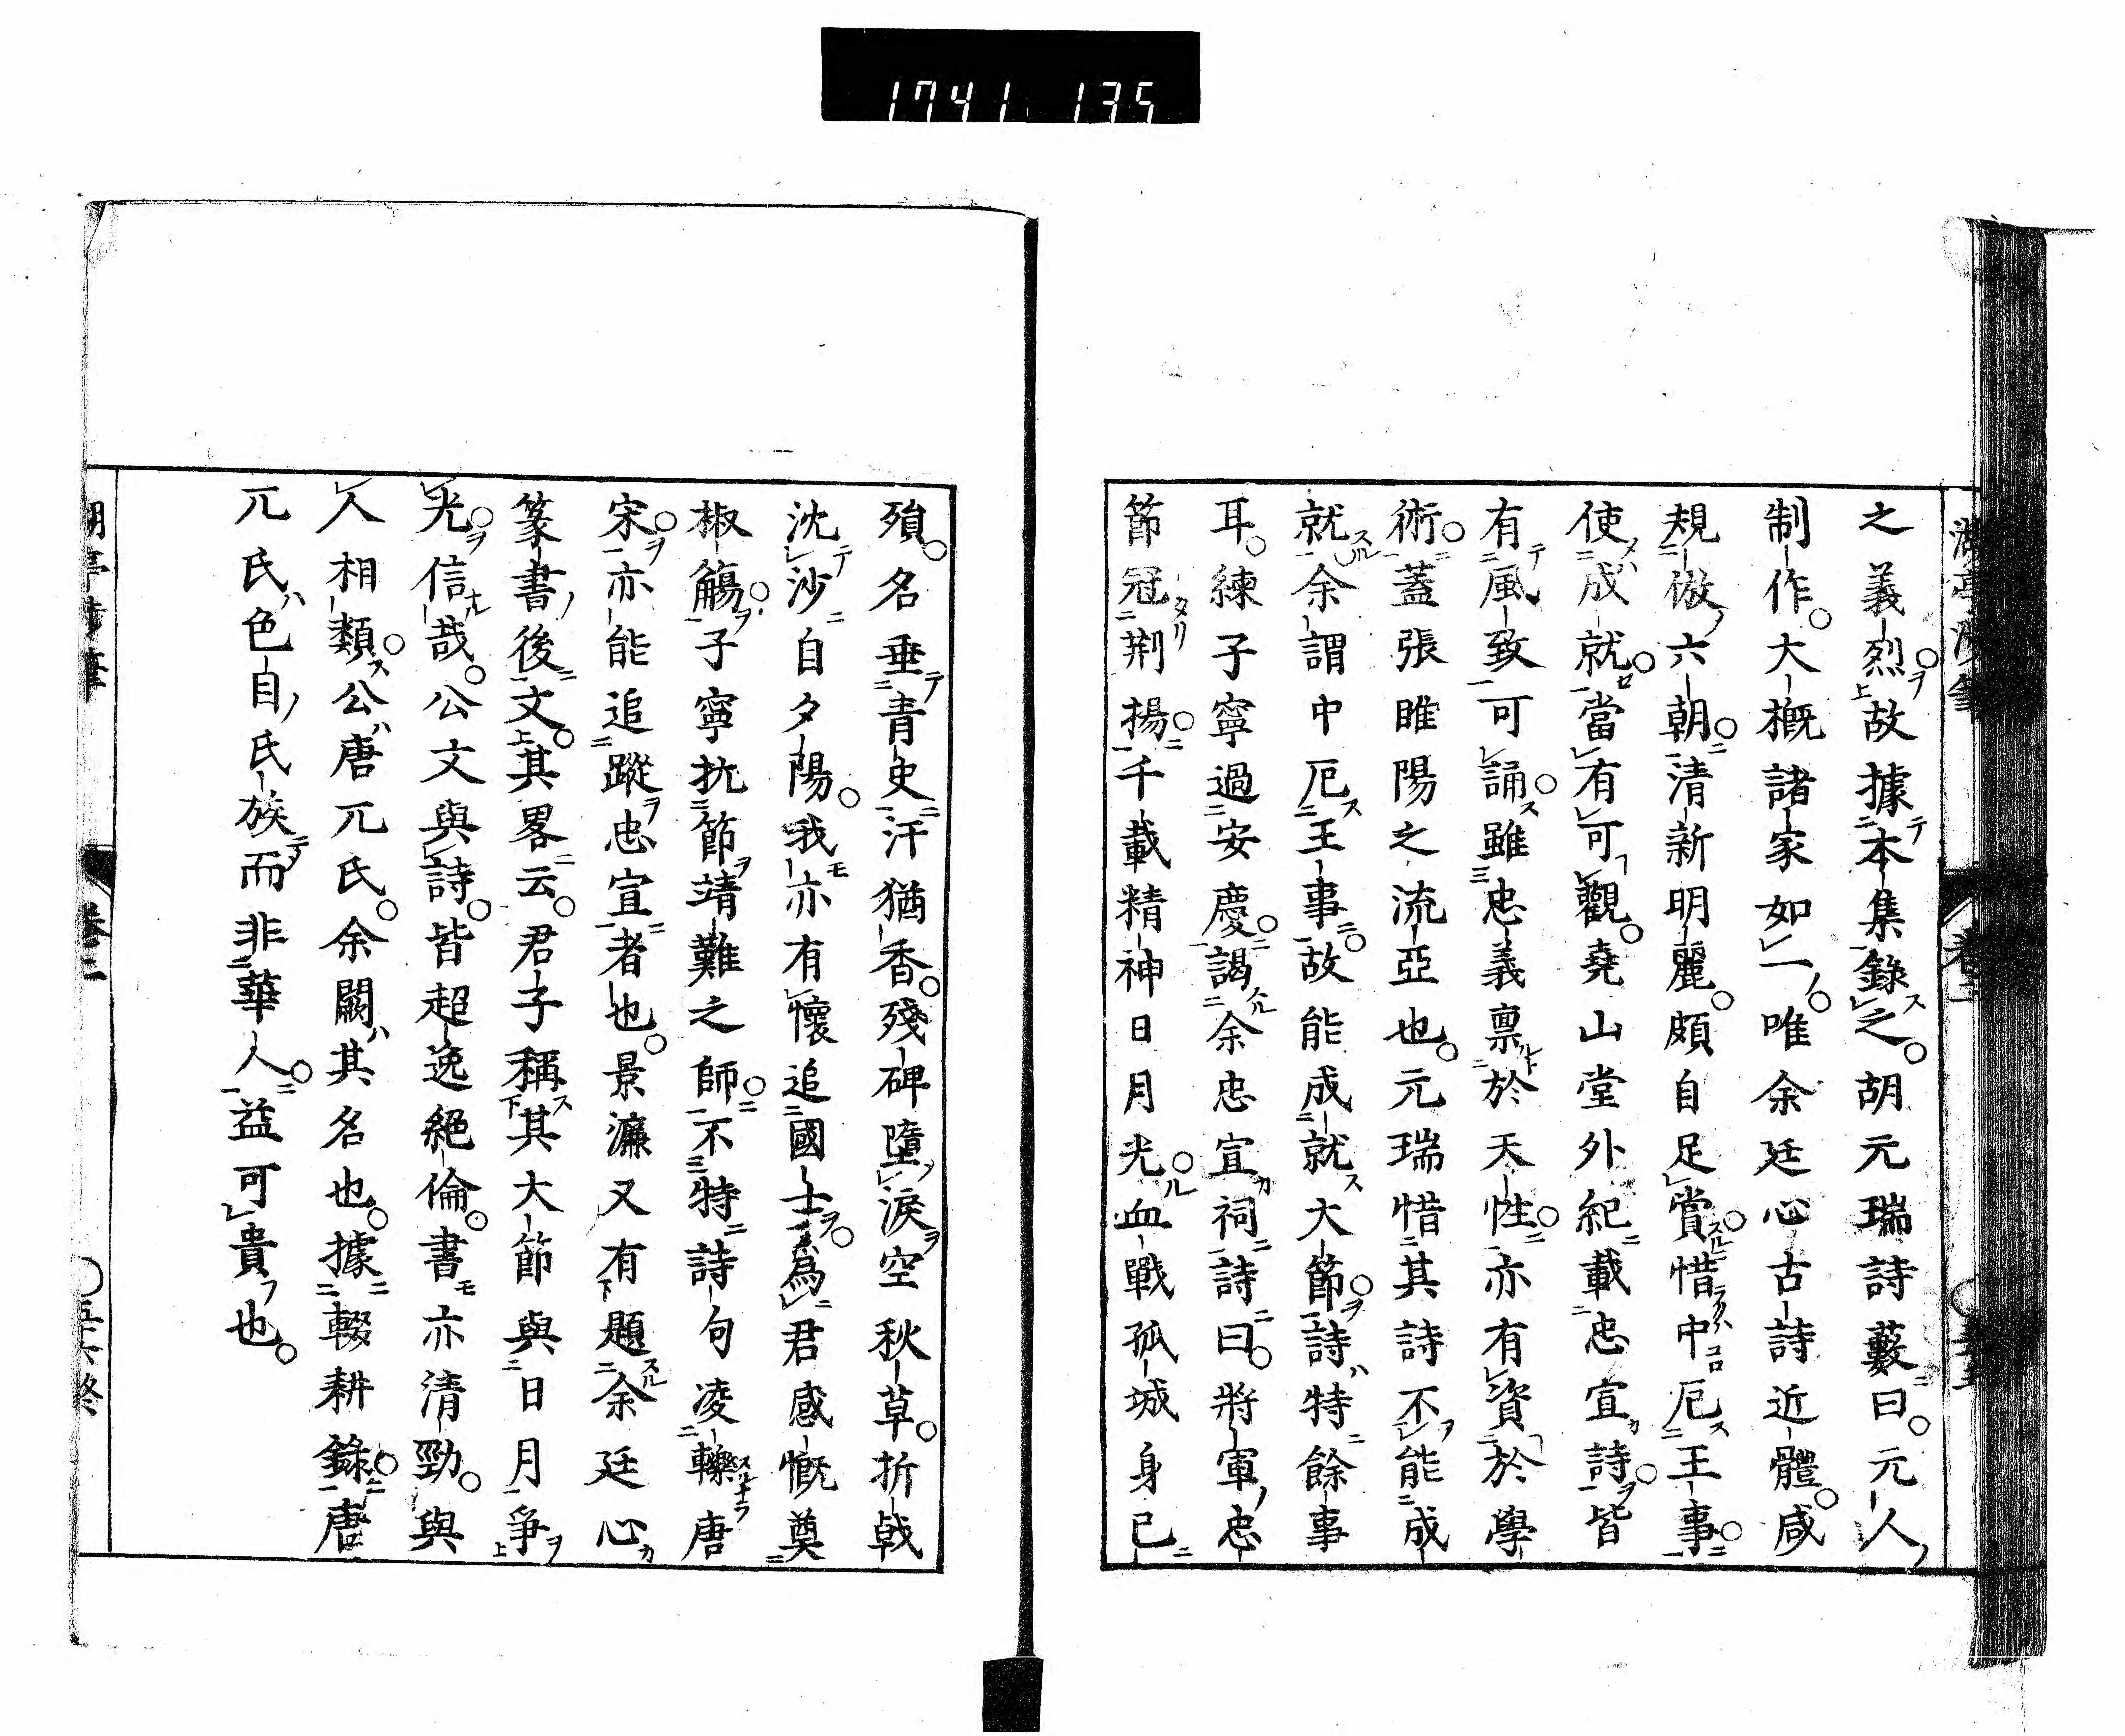 1741 135
之義烈故據本集錄之。胡元瑞詩藪曰。元人
制作。大槪諸家如一。唯余廷心古詩近體。咸
規倣六朝。清新明麗。頗自足賞。惜中厄王事。
使成就。當有可觀。堯山堂外紀載忠宣詩。皆
有風致可誦。雖忠義禀於天性。亦有資於學
術。蓋張睢陽之流亞也。元瑞惜其詩不能成
就。余謂中厄王事。故能成就大節。詩特餘事
耳。練子寧過安慶。謁余忠宣祠詩曰。將軍忠
節冠荆揚。千載精神日月光。血戰孤城身已
殞。名垂青史汗猶香。殘碑墮淚空秋草。折戟
沈沙自夕陽。我亦有懷追國士。為君感慨奠
椒觴。子寧抗節靖難之師。不特詩句凌轢唐
宋。亦能追蹤忠宣者也。景濂又有題余廷心
篆書後文。其畧云。君子稱其大節與日月爭
光。信哉。公文與詩。皆超逸絕倫。書亦清勁。與
人相類。公唐兀氏。余闕其名也。據輟耕錄。唐
兀氏色目氏族而非華人。益可貴也。